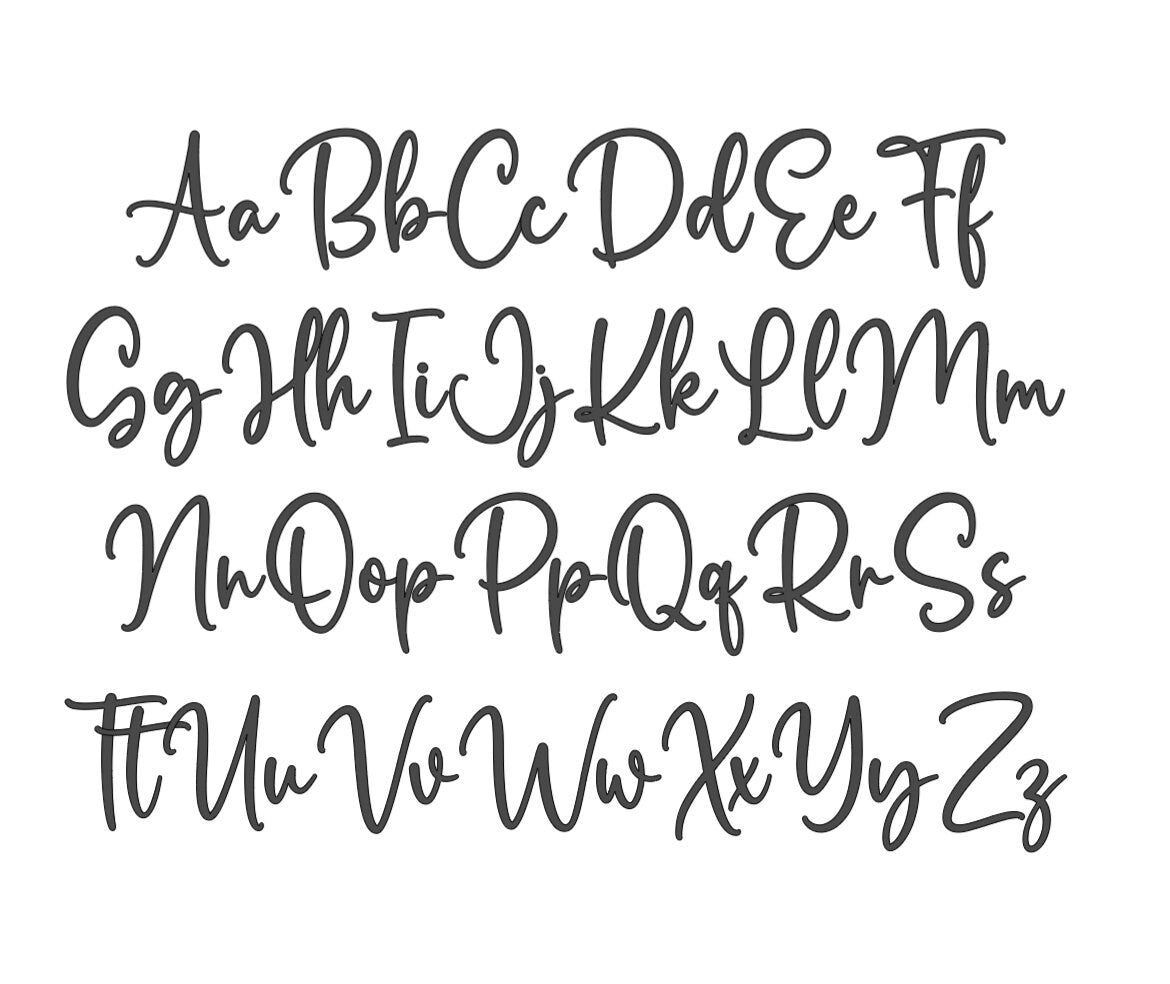 Aa Bb Cc Dd Ee Ff
Gg Hh Ii Jj Kk Ll Mm
Nn Oo p Pp Qq Rr Ss
Tt Uu Vv Ww Xx Yy Zz